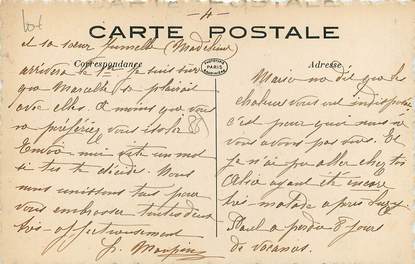 - 4 -
CARTE POSTALE
Correspondance
Adresse
PARIS
et sa sœur jumelle (Madeleine)
arrivera le 1er je suis sûre
que Marcelle se plairait
avec elles. A moins que vous
ne préfériez vous
Envoie moi vite un mot
si tu te décide. Nous
nous unissons tous pour
vous embrasser toutes deux
très affectueusement
Marie m'a dit que les
chaleurs vous ont indisposée
c'est pour que nous ne
vous avons pas vus. Et
je n'ai pu aller chez toi
ayant été encore
très malade après
Paul a perdu 8 jours
de vacances.